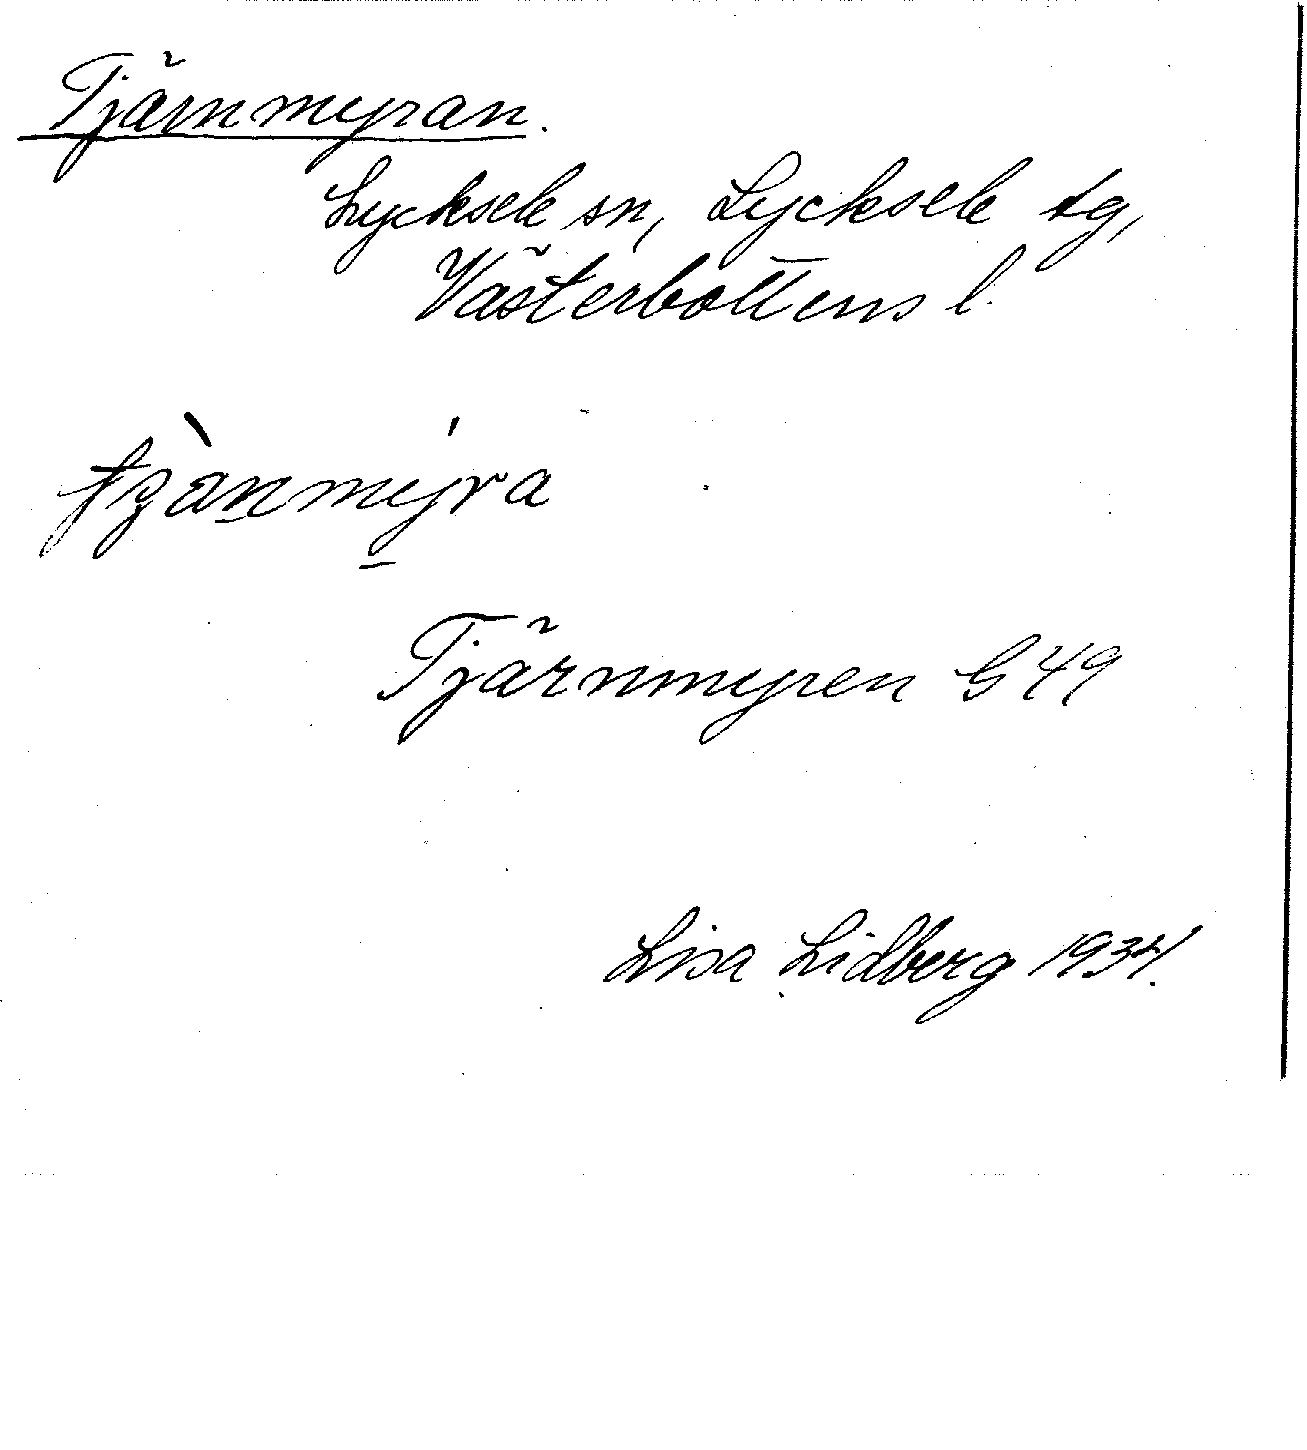 Tjärnmyran.
Lycksele sn, Lycksele tg,
Västerbottens l.
Tjärnmyren G 49
Lisa Lidberg 1934.